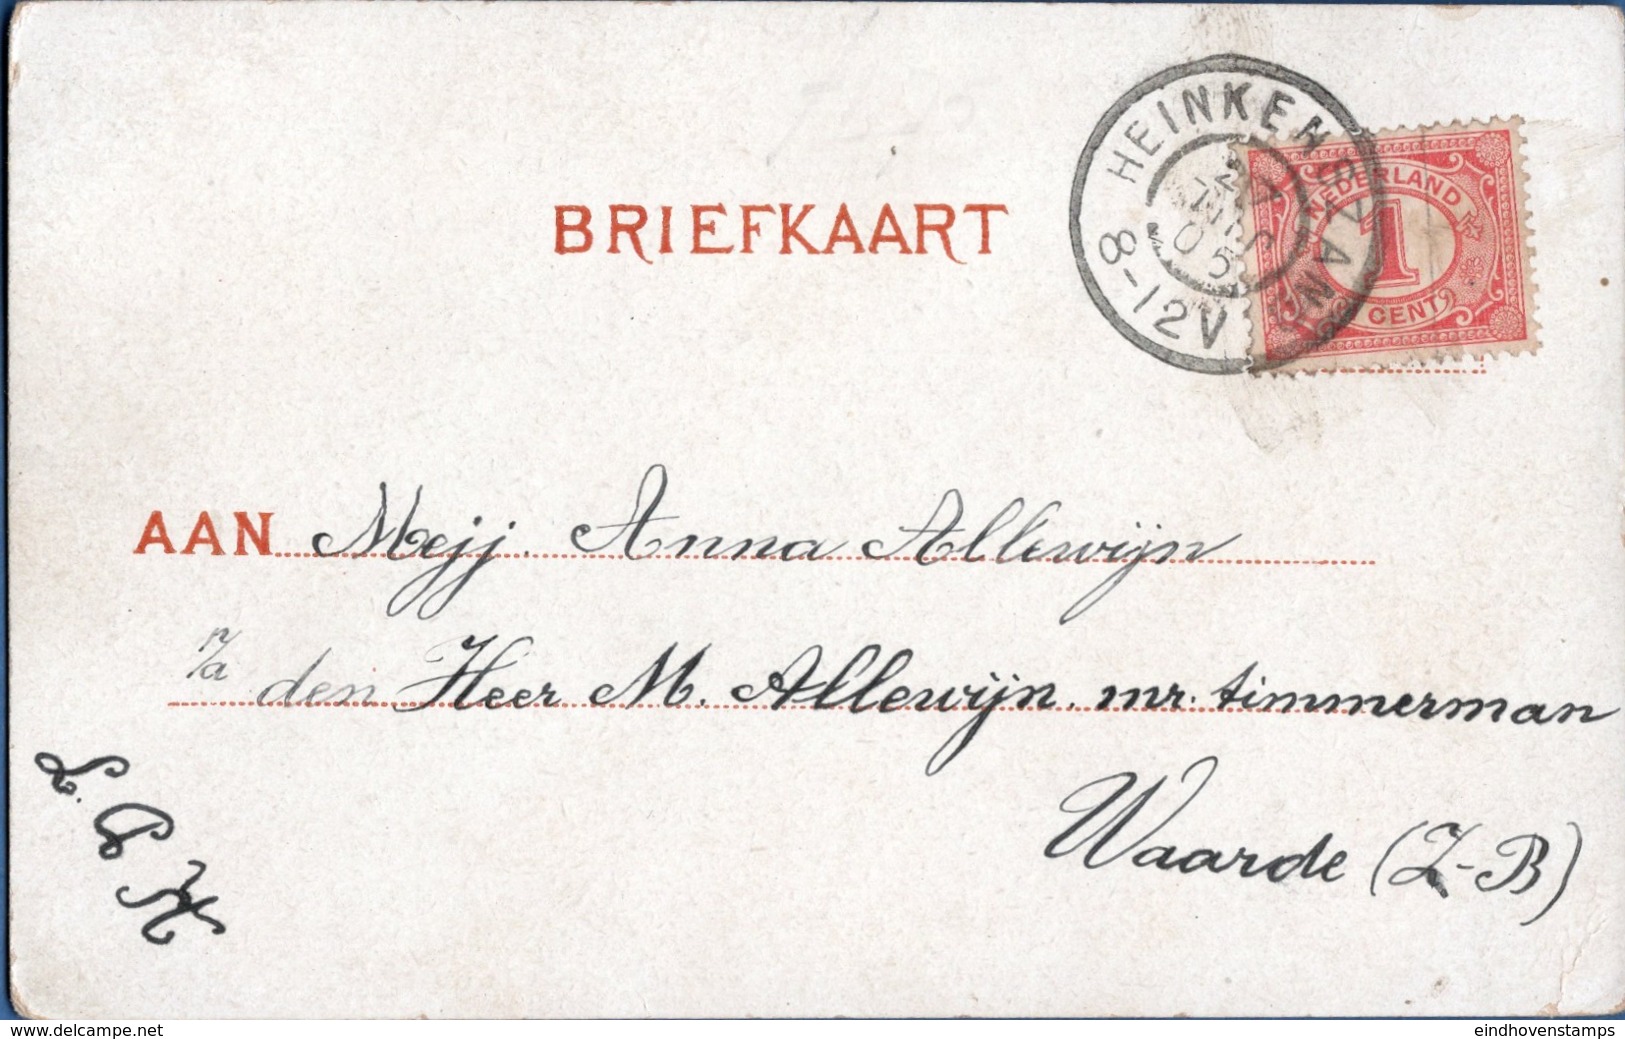 HEINKENSZAND
27 JUL 05
8-12V
NEDERLAND
1
CENT
BRIEFKAART
AAN Mejj. Anna Allewijn
p/a den Heer M. Allewijn. mr. timmerman
Waarde (Z-B)
www.delcampe.net
eindhovenstamps